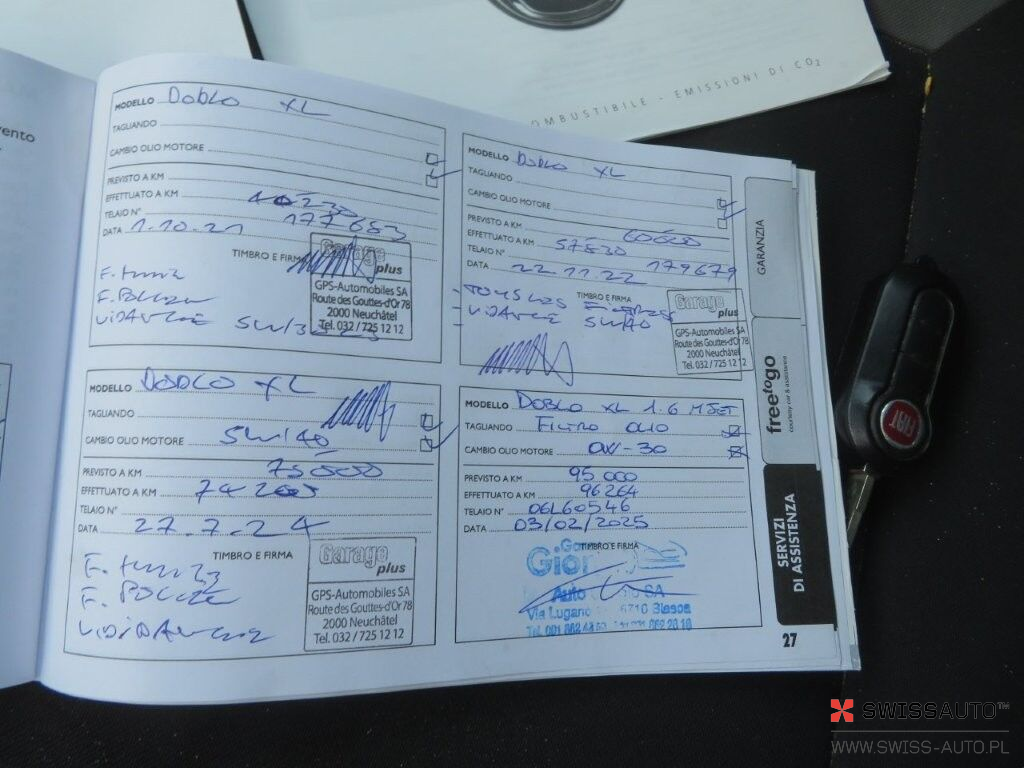 COMBUSTIBILE - EMISSIONI DI CO₂
vento
MODELLO DOBLO XL
TAGLIANDO
CAMBIO OLIO MOTORE
PREVISTO A KM
EFFETTUATO A KM
TELAIO N° 177683
DATA 1.10.21
TIMBRO E FIRMA
Garage plus
GPS-Automobiles SA
Route des Gouttes-d'Or 78
2000 Neuchâtel
Tel. 032 / 725 12 12
VIDANGE 5W/30
MODELLO DOBLO XL
TAGLIANDO
CAMBIO OLIO MOTORE
PREVISTO A KM 60000
EFFETTUATO A KM 57830
TELAIO N° 179679
DATA 22.11.22
TIMBRO E FIRMA
VIDANGE 5W/40
Garage plus
GPS-Automobiles SA
Route des Gouttes-d'Or 78
2000 Neuchâtel
Tel. 032 / 725 12 12
MODELLO DOBLO XL
TAGLIANDO
CAMBIO OLIO MOTORE 5W/40
PREVISTO A KM 75000
EFFETTUATO A KM
TELAIO N°
DATA 27.7.24
TIMBRO E FIRMA
Garage plus
GPS-Automobiles SA
Route des Gouttes-d'Or 78
2000 Neuchâtel
Tel. 032 / 725 12 12
MODELLO DOBLO XL 1.6 MJET
TAGLIANDO FILTRO OLIO
CAMBIO OLIO MOTORE 0W-30
PREVISTO A KM 95 000
EFFETTUATO A KM 96 264
TELAIO N° 06L60546
DATA 03/02/2025
TIMBRO E FIRMA
Auto SA
Via Lugano 6710 Biasca
GARANZIA
freetogo
courtesy car & assistance
SERVIZI
DI ASSISTENZA
27
FIAT
SWISSAUTO™
WWW.SWISS-AUTO.PL